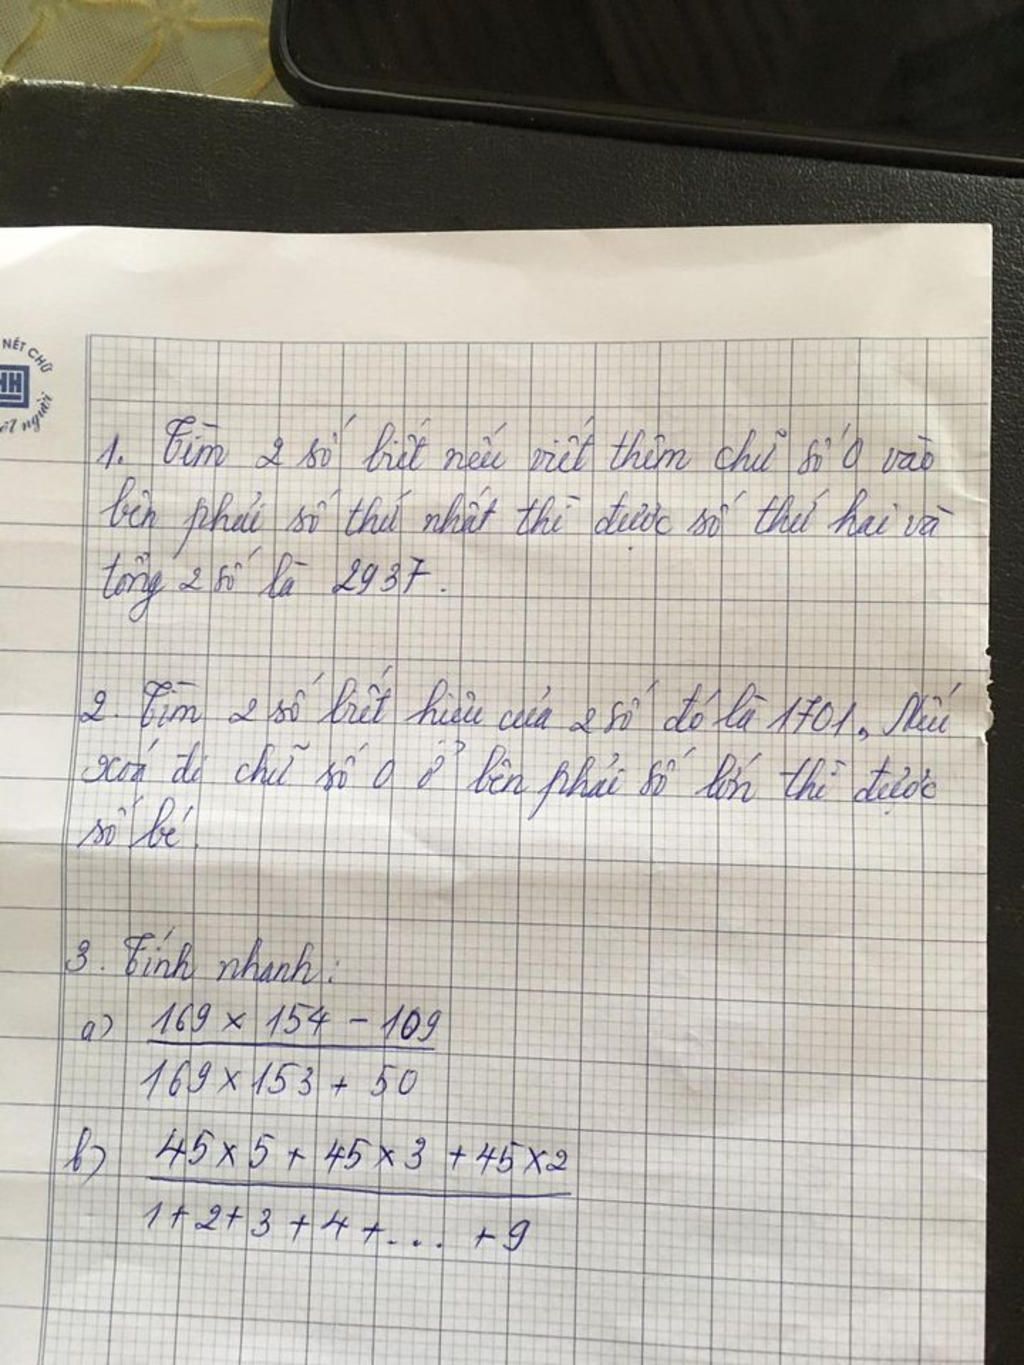 NÉT CHỮ
HH
người
1. Tìm 2 số biết nếu viết thêm chữ số 0 vào
bên phải số thứ nhất thì được số thứ hai và
tổng 2 số là 2937.
2. Tìm 2 số biết hiệu của 2 số đó là 1701. Nếu
xoá đi chữ số 0 ở bên phải số lớn thì được
số bé.
3. Tính nhanh:
a) 169 x 154 - 109
169 x 153 + 50
b) 45 x 5 + 45 x 3 + 45 x 2
1 + 2 + 3 + 4 + ... + 9